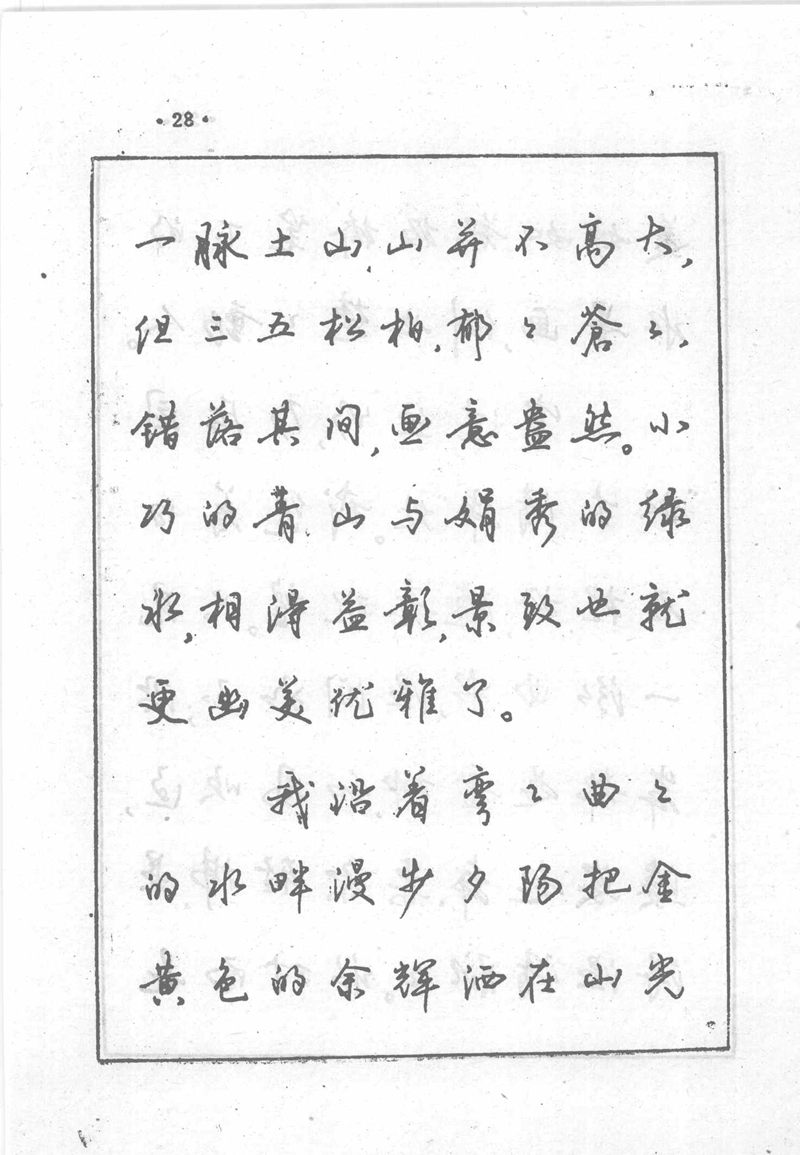 ·28·
一脉土山，山并不高大，
但三五松柏，郁々苍々，
错落其间，画意盎然。小
巧的青山与娟秀的绿
水，相得益彰，景致也就
更幽美优雅了。
我沿着弯々曲々
的水畔漫步夕阳把金
黄色的余辉洒在山光